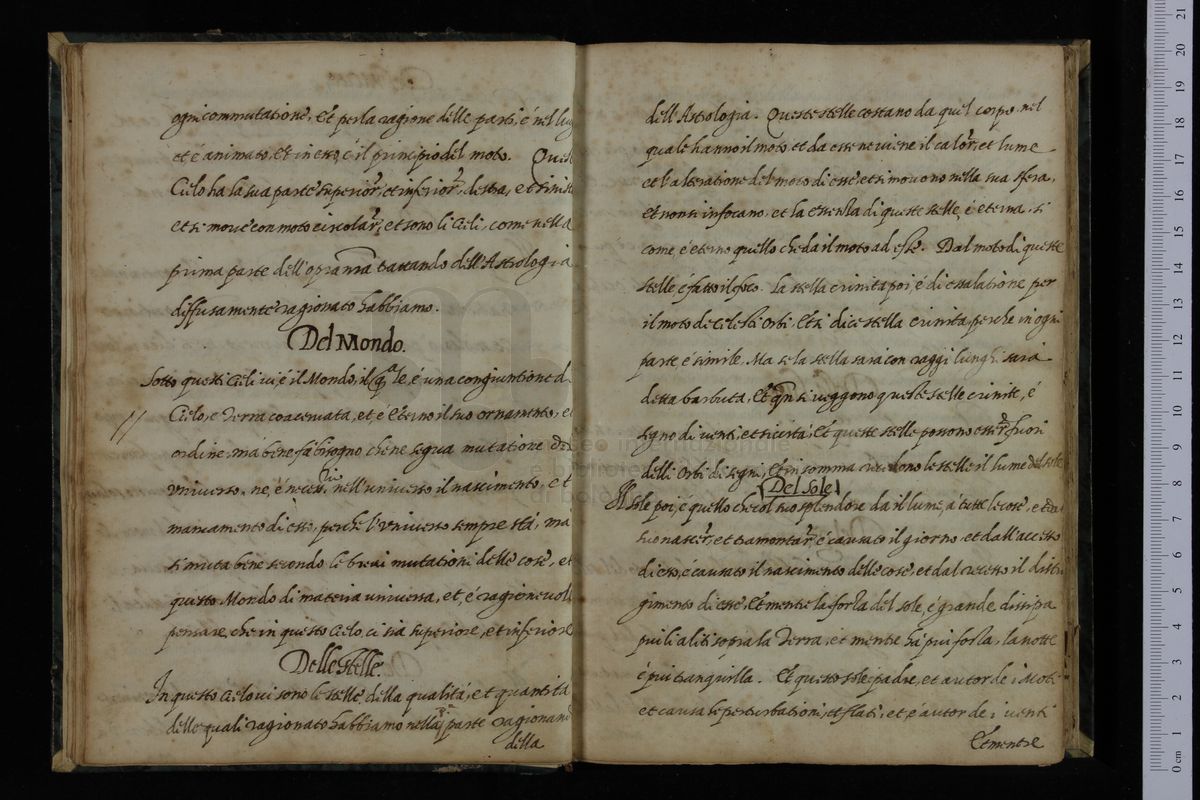 ogni commutatione, Et per la ragione delle parti, é nel luog
et é animato, Et in esso, é il principio del moto. Quel
Cielo ha la sua parte superior, et inferior, destra, et sinist
et si move con moto circolar, et sono li Cieli, come nella
prima parte dell'opra nra trattando dell'Astrologia
diffusamente ragionato habbiamo.
Del Mondo.
Sotto questi Cieli vi é il Mondo, il qale, é una congiuntione d
Cielo, e Terra coacervata, et, é Eterno il suo ornamento, et
ordine, má bene fá bisogno che ne segua mutatione
Universo, ne, é necess.rio, nell'universo il nascimento, et
mancamento di esso, perche l'Universo sempre stá, má
si muta bene secondo le brevi mutationi delle cose, et
questo Mondo di materia universa, et, é ragionevol
pensare, che in questo Cielo, ci sia superiore, et inferiore
Delle stelle.
In questo Cielo vi sono le stelle, della qualitá, et quantitá
delle quali ragionato habbiamo nella pa parte ragionand
della
dell'Astrologia. Queste stelle costano da quel corpo, nel
quale hanno il moto, et da esse ne viene il calor, et lume
et l'alteratione del moto di esse, et si movono nella sua sfera,
Et non si infocano, et la essenza di queste stelle, é eterna, si
come, é eterno quello che da il moto ad esse. Dal moto di queste
stelle é fatto il foco. La stella crinita poi, é di essalatione per
il moto de Celesti Orbi, Et si dice stella crinita, perche in ogni
parte, é simile. Ma se la stella sará con raggi lunghi sará
detta barbuta, Et qn si veggono queste stelle crinite, é
segno di venti, et siccitá, Et queste stelle possono esser fuori
delli Orbi di segni, Et in somma rendono le stelle il lume del sole
Del Sole
Il sole poi, é quello che col suo splendore da il lume, á tutte le cose, et da
suo nascer, et tramontar, é causato il giorno, et dall'accesso
di esso, é causato il nascimento delle cose, et dal recesso il distru
gimento di esse, Et mentre la forza del sole, é grande dissipa
piu li aliti sopra la Terra, et mentre há piu forza, la notte
é piu tranquilla. Et questo sole padre, et autor de i Moti
et causa le perturbationi, et flati, et, é autor de i venti
Et mentre